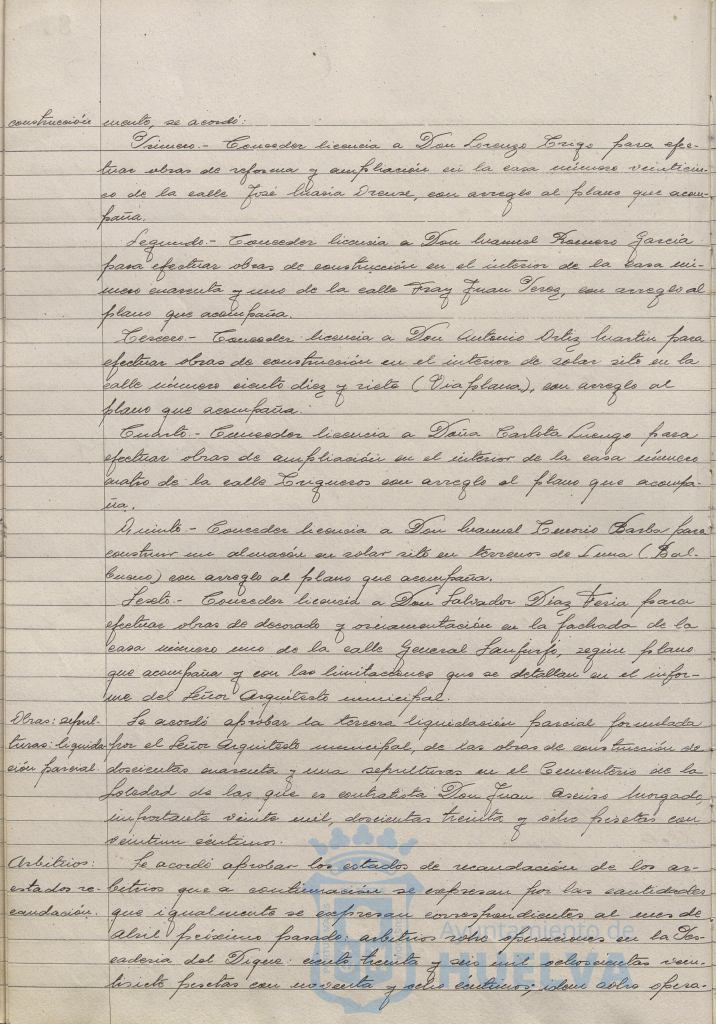 construcción mento, se acordó:
Primero.- Conceder licencia a Don Lorenzo Trigo para efec-
tuar obras de reforma y ampliación en la casa número veinticin-
co de la calle José María Orense, con arreglo al plano que acom-
paña.
Segundo.- Conceder licencia a Don Manuel Romero García
para efectuar obras de construcción en el interior de la casa nú-
mero cuarenta y uno de la calle Fray Juan Perez, con arreglo al
plano que acompaña.
Tercero.- Conceder licencia a Don Antonio Ortiz Martin para
efectuar obras de construcción en el interior de solar sito en la
calle número ciento diez y siete (Viaplana), con arreglo al
plano que acompaña.
Cuarto.- Conceder licencia a Doña Carlota Luengo para
efectuar obras de ampliación en el interior de la casa número
cuatro de la calle Trigueros con arreglo al plano que acompa-
ña.
Quinto.- Conceder licencia a Don Manuel Tenorio Barba para
construir un almacén en solar sito en terrenos de (Bal-
bueno) con arreglo al plano que acompaña.
Sexto.- Conceder licencia a Don Salvador Díaz Feria para
efectuar obras de decorado y ornamentación en la fachada de la
casa número uno de la calle General Sanjurjo, según plano
que acompaña y con las limitaciones que se detallan en el infor-
me del Señor Arquitecto municipal.
Obras: sepul- Se acordó aprobar la tercera liquidación parcial formulada
turas: liquida- por el Señor Arquitecto municipal, de las obras de construcción de
ción parcial. doscientas cuarenta y una sepulturas en el Cementerio de la
Soledad de las que es contratista Don Juan Asensio Morgado,
importante veinte mil, doscientas treinta y ocho pesetas con
veintiun céntimos.
Arbitrios: Se acordó aprobar los estados de recaudación de los ar-
estados re- bitrios que a continuación se expresan por las cantidades
caudación. que igualmente se expresan correspondientes al mes de
Abril próximo pasado: arbitrios sobre operaciones en la Pes-
cadería del Dique: ciento treinta y seis mil ochocientas vein-
tisiete pesetas con noventa y ocho céntimos; idem sobre opera-
Ayuntamiento de
HUELVA